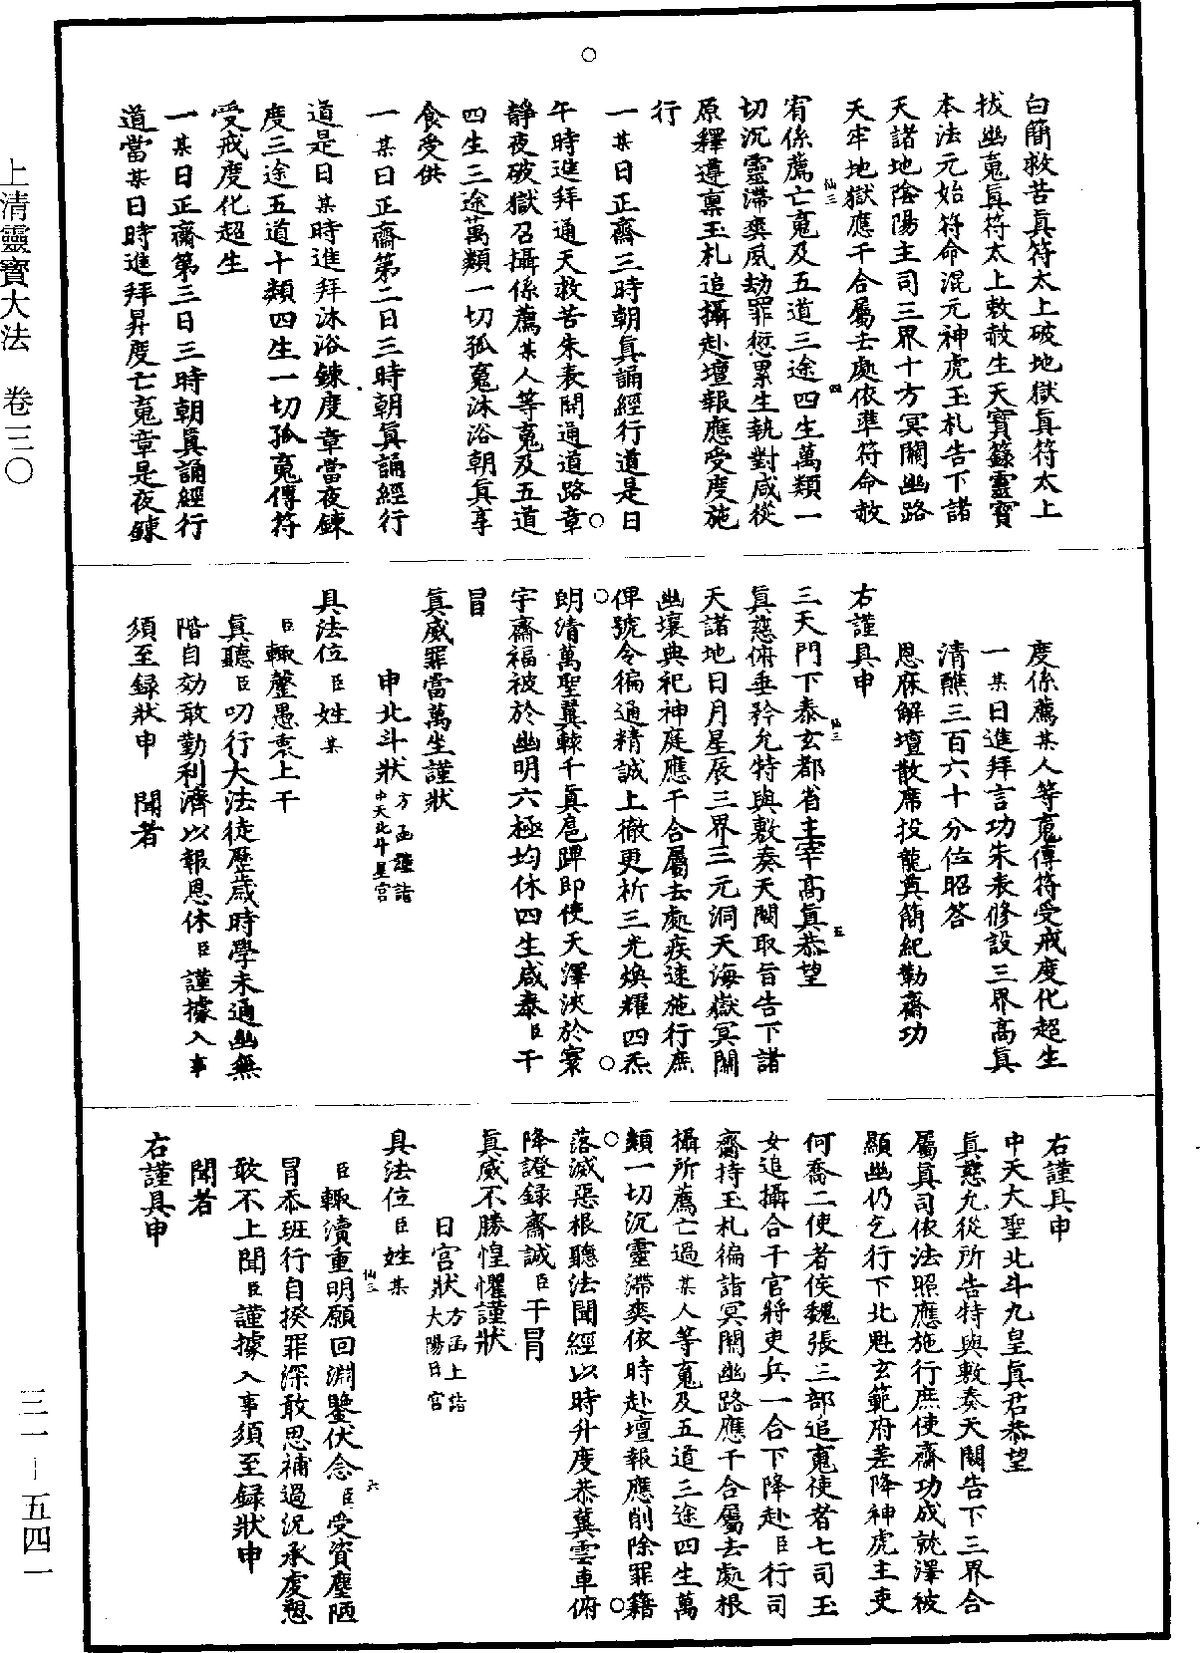 上清靈寶大法　卷三〇
三一—五四一
白簡救苦眞符太上破地獄眞符太上
拔幽䰟眞符太上敕赦生天寶籙靈寶
本法元始符命混元神虎玉札告下諸
天諸地陰陽主司三界十方冥關幽路
天牢地獄應干合屬去處依準符命赦
宥係薦亡䰟及五道三途四生萬類一
切沉靈滯爽夙劫罪愆累生執對咸從
原釋遵稟玉札追攝赴壇報應受度施
行
一某日正齋三時朝眞誦經行道是日
午時進拜通天救苦朱表開通道路章
靜夜破獄召攝係薦某人等䰟及五道
四生三途萬類一切孤䰟沐浴朝眞享
食受供
一某日正齋第二日三時朝眞誦經行
道是日某時進拜沐浴鍊度章當夜鍊
度三途五道十類四生一切孤䰟傳符
受戒度化超生
一某日正齋第三日三時朝眞誦經行
道當某日時進拜昇度亡䰟章是夜鍊
仙三　四
度係薦某人等䰟傳符受戒度化超生
一某日進拜言功朱表修設三界高眞
清醮三百六十分位昭答
恩庥解壇散席投龍奠簡紀勒齋功
右謹具申
三天門下泰玄都省主宰高眞恭望
眞慈俯垂矜允特與敷奏天闕取旨告下諸
天諸地日月星辰三界三元洞天海嶽冥關
幽壤典祀神庭應干合屬去處疾速施行庶
俾號令徧通精誠上徹更祈三光煥耀四炁
朗清萬聖冀轅千眞扈蹕即使天澤浹於寰
宇齋福被於幽明六極均休四生咸泰臣干
冒
眞威罪當萬坐謹狀
申北斗狀方函謹詣中天北斗星宮
具法位臣姓某
臣輙罄愚衷上干
眞聽臣叨行大法徒歷歲時學未通幽無
階自効敢勤利濟以報恩休臣謹據入事
須至録狀申　聞者
仙三　五
右謹具申
中天大聖北斗九皇眞君恭望
眞慈允從所告特與敷奏天闕告下三界合
屬眞司依法照應施行庶使齋功成就澤被
顯幽仍乞行下北魁玄範府差降神虎主吏
何喬二使者侯魏張三部追䰟使者七司玉
女追攝合干官將吏兵一合下降赴臣行司
齋持玉札徧詣冥關幽路應干合屬去處根
攝所薦亡過某人等䰟及五道三途四生萬
類一切沉靈滯爽依時赴壇報應削除罪籍
落滅惡根聽法聞經以時升度恭冀雲車俯
降證録齋誠臣干冒
眞威不勝惶懼謹狀
日宮狀方函上詣大陽日宮
具法位臣姓某
臣輙瀆重明願回淵鑒伏念臣受資塵陋
冒忝班行自揆罪深敢思補過況承虔懇
敢不上聞臣謹據入事須至録狀申
聞者
右謹具申
仙三　六